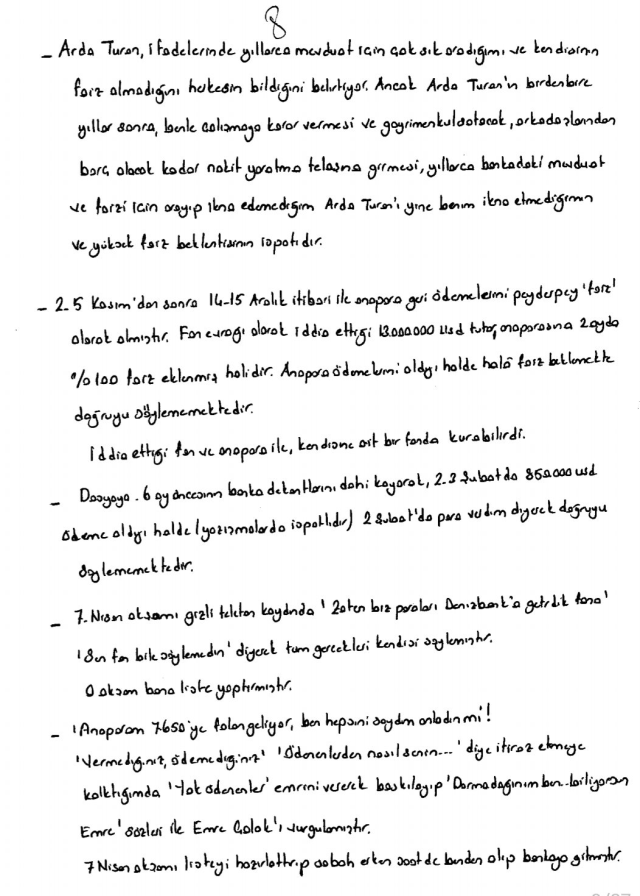 8
- Arda Turan, ifadelerinde yıllarca mevduat için çok sık aradığımı ve kendisinin
faiz almadığını herkesin bildiğini belirtiyor. Ancak Arda Turan'ın birdenbire
yıllar sonra, benle çalışmaya karar vermesi ve gayrimenkul satacak, arkadaşlarından
borç alacak kadar nakit yaratma telaşına girmesi, yıllarca bankadaki mevduat
ve faizi için arayıp ikna edemediğim Arda Turan'ı yine benim ikna etmediğimin
ve yüksek faiz beklentisinin ispatıdır.
- 2.5 Kasım'dan sonra 14-15 Aralık itibari ile anapara geri ödemelerini peyderpey 'faiz'
olarak almıştır. Fon evrağı olarak iddia ettiği 13.000.000 usd tutar, anaparasına 2 ayda
%100 faiz eklenmiş halidir. Anapara ödenekimi aldığı halde halâ faiz beklemekte
doğruyu söylememektedir.
İddia ettiği fon ve anapara ile, kendisine ait bir fonda kurabilirdi.
- Dosyaya . 6 ay öncesinin banka dekontlarını dahi koyarak, 2.3 Şubatda 850.000 usd
ödeme aldığı halde (yazışmalarda ispatlıdır) 2 Şubat'da para verdim diyerek doğruyu
söylememektedir.
- 7. Nisan akşamı gizli telefon kaydında ' Zaten biz paraları Denizbank'a getirdik fona'
'Sen fon bile söylemedin' diyerek tüm gerçekleri kendisi söylemiştir.
O akşam bana liste yaptırmıştır.
- 'Anaparam 7650'ye falan geliyor, ben hepsini saydım anladın mı'!
'Vermediğiniz, ödemediğiniz' 'Ödenenlerden nasıl senin...' diye itiraz etmeye
kalktığımda 'Yok ödenenler' emrini vererek baskılayıp 'Darmadağınım ben..biliyorsun
Emre' sözleri ile Emre Çolak'ı vurgulamıştır.
7 Nisan akşamı listeyi hazırlattırıp sabah erken saatde benden alıp bankaya gitmiştir.